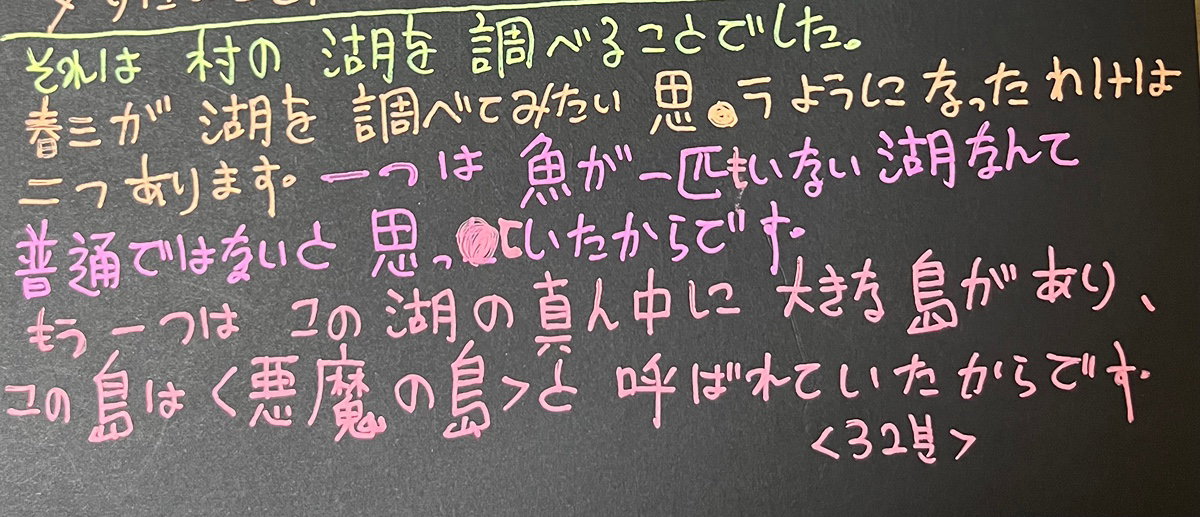 それは 村の 湖を 調べることでした。
春三が 湖を 調べてみたい 思うようになったわけは
二つあります。一つは 魚が一匹もいない湖なんて
普通ではないと 思っていたからです。
もう一つは この湖の真ん中に 大きな島があり、
この島は<悪魔の島>と 呼ばれていたからです。
<32